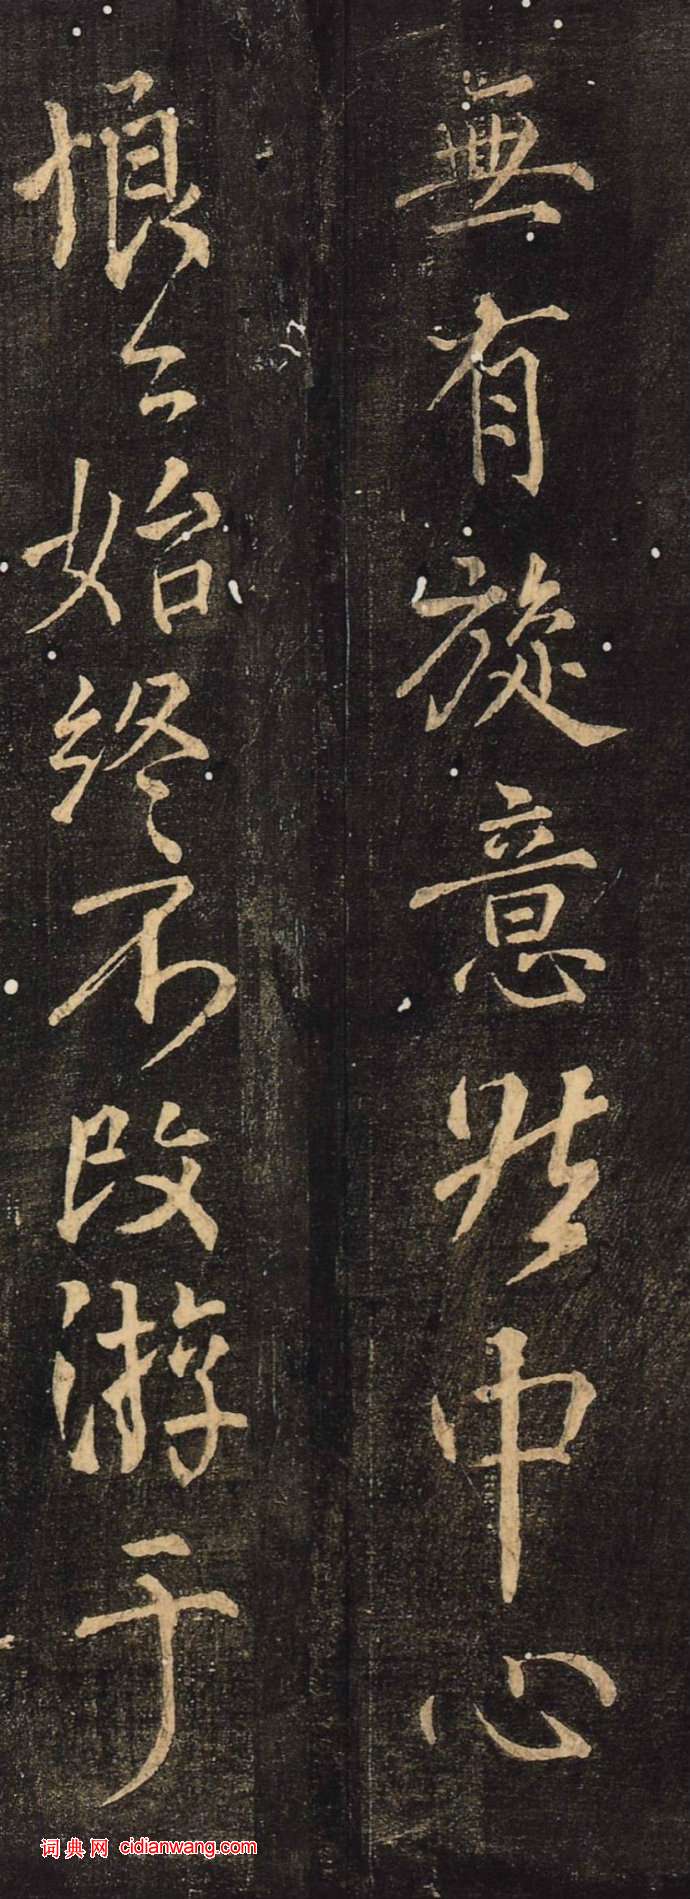 無有旋意中心
恨〻始終不改游于
词典网 cidianwang.com